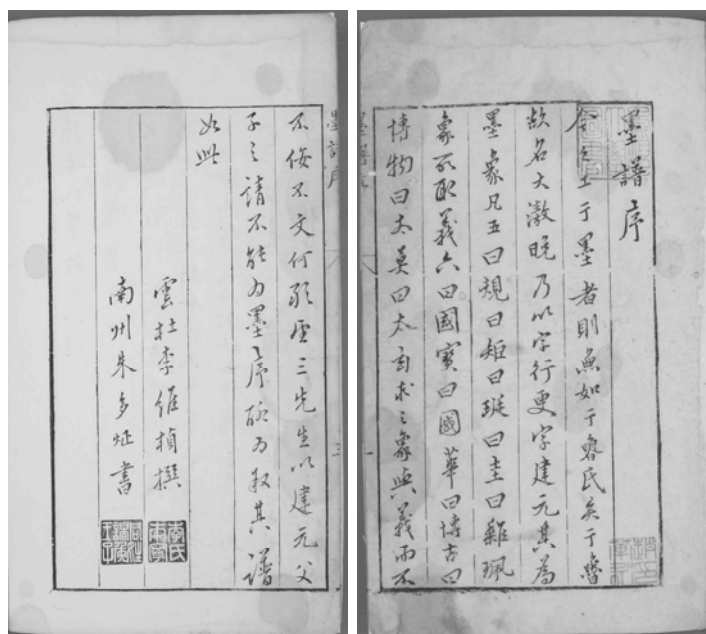 墨譜序
今之工于墨者則無如于魯氏矣于魯
故名大激晚乃以字行更字建元其為
墨象凡五曰規曰矩曰珽曰圭曰雜珮
象所取義六曰國寶曰國華曰博古曰
博物曰太莫曰太玄求之象與義而不
墨譜序
不佞不文何敢望三先生以建元父
子之請不能為墨序聊為叙其譜
如此
雲杜李維楨撰
李氏本寧
南州朱多炡書